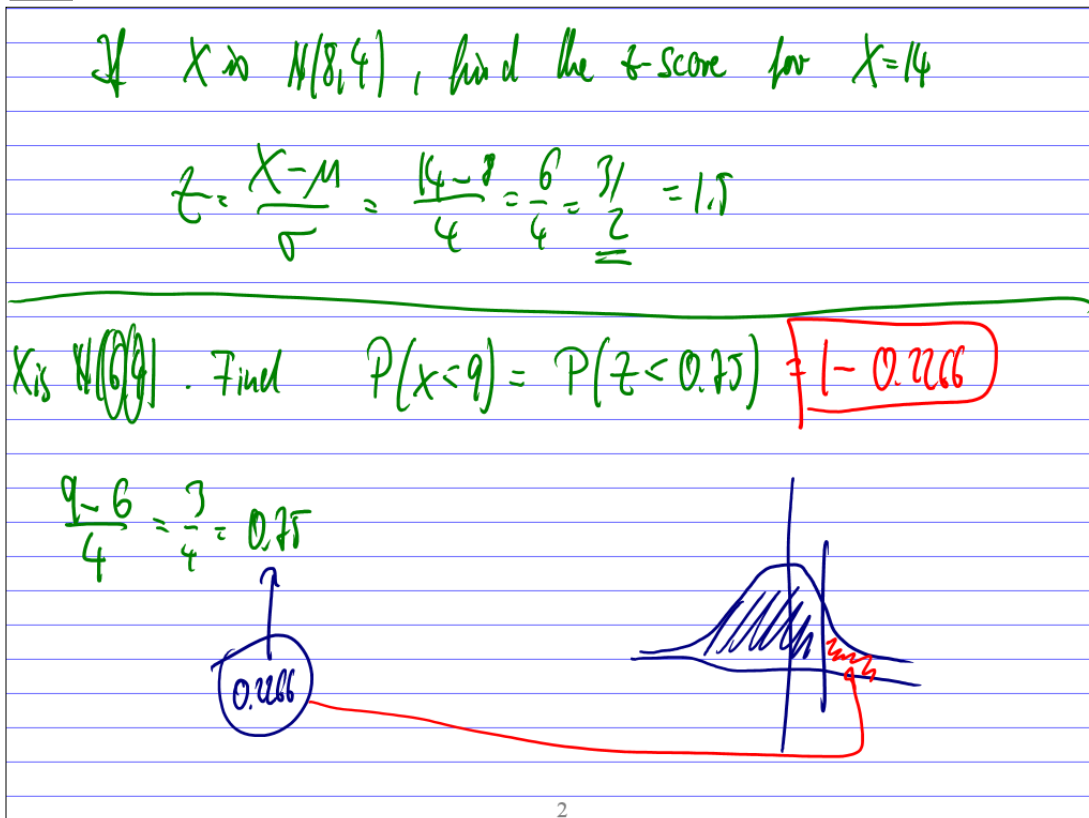 If X is N(8,4), find the z-score for X=14
z = X-μ/σ = 14-8/4 = 6/4 = 3/2 = 1.5
X is N(6,4). Find P(X<9) = P(z<0.75) = 1-0.2266
9-6/4 = 3/4 = 0.75
0.2266
2